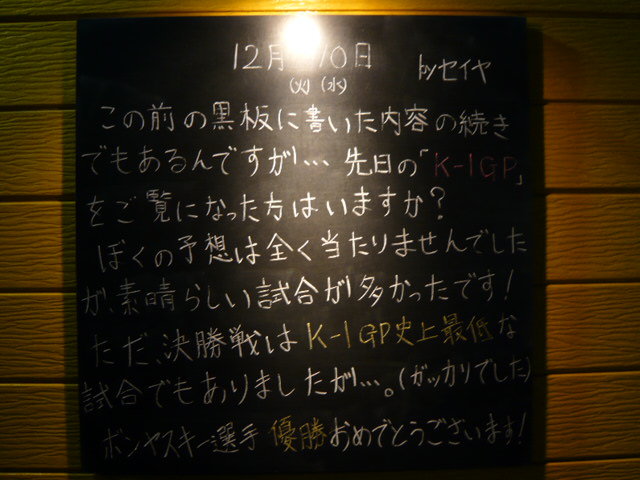 12月 10日 byセイヤ
(火)(水)
この前の黒板に書いた内容の続き
でもあるんですが…先日の「K-1GP」
をご覧になった方はいますか?
ぼくの予想は全く当たりませんでした
が、素晴らしい試合が多かったです!
ただ、決勝戦はK-1GP史上最低な
試合でもありましたが…。(ガッカリでした)
ボンヤスキー選手優勝おめでとうございます!